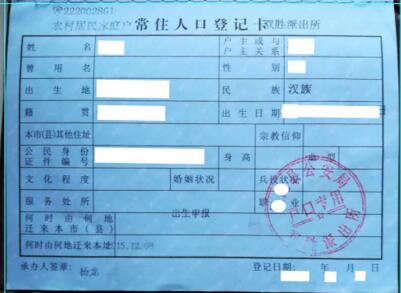 222002861
农村居民家庭户 常住人口登记卡 双胜派出所
姓 名 户主或与户主关系
曾用名 性 别
出生地 民 族 汉族
籍 贯 出生日期 日
本市(县)其他住址 宗教信仰
公民身份证件编号 身高
文化程度 婚姻状况 兵役状况
服务处所 职 业
何时由何地迁来本市(县) 出生申报
何时由何地迁来本址 2015.12.08
承办人签章: 登记日期: 年 月 日
县公安局
户口专用